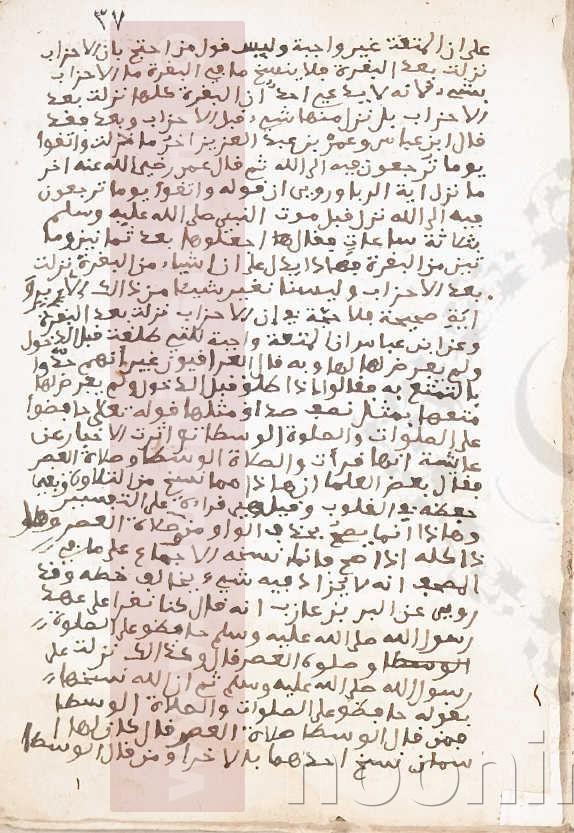 ٣٧
على ان المتعة غير واجبة وليس قول من احتج بان الاحزاب
نزلت بعد البقرة فلا ينسخ ما في البقرة ما الاحزاب
بشيء لانه لا يدعي احد ان البقرة كلها نزلت بعد
الاحزاب بل نزل منها شيء قبل الاحزاب وبعد فقد
قال ابن عباس وعمر بن عبد العزيز اخر ما نزلت واتقوا
يوما ترجعون فيه الى الله ثم قال عمر رضي الله عنه اخر
ما نزل اية الربا وروي ان قوله واتقوا يوما ترجعون
فيه الى الله نزل قبل موت النبي صلى الله عليه وسلم
بثلاثة ساعات فقال اجعلوها بعد ثمانين وما
تين من البقرة فهاذا يدل على ان اشياء من البقرة نزلت
بعد الاحزاب وليستا تغير شيئا من ذالك
اية صحيحة فلا حجة في ان الاحزاب نزلت بعد البقرة
وعن ابن عباس ان المتعة واجبة للتي طلقت قبل الدخول
ولم يفرض لها وبه قال العراقيون غير انهم حدوا
بالتمتع به فقالوا اذا طلق قبل الدخول ولم يفرض لها
متعها بمثل نصف صداق مثلها قوله تعلى حافظوا
على الصلوات والصلوة الوسطا تواترت الاخبار عن
عائشة انها قرأت والصلاة الوسطا وصلاة العصر
فقال بعض العلما ان هاذا مما نسخ من التلاوة وبقي
حفظه في القلوب وقيل هي قراة على التفسير
وهاذا انما يصح بحذف الواو من وصلاة العصر وهاذا
ذا كله اذا صح فانما نسخه الاجماع على ما في
المصحف انه لا يزاد فيه شيء يخالف خطه وقد
روي عن البر بن عازب انه قال كنا نقرا على عهد
رسول الله صلى الله عليه وسلم حافظو على الصلوة
الوسطا وصلوة العصر قال وكذالك نزلت على
رسول الله صلى الله عليه وسلم ثم ان الله نسخها
بقوله حافظو على الصلوات والصلاة الوسطا
فمن قال الوسطا صلاة العصر قال كان لها ا
سمان نسخ احدهما بالاخر ومن قال الوسطا